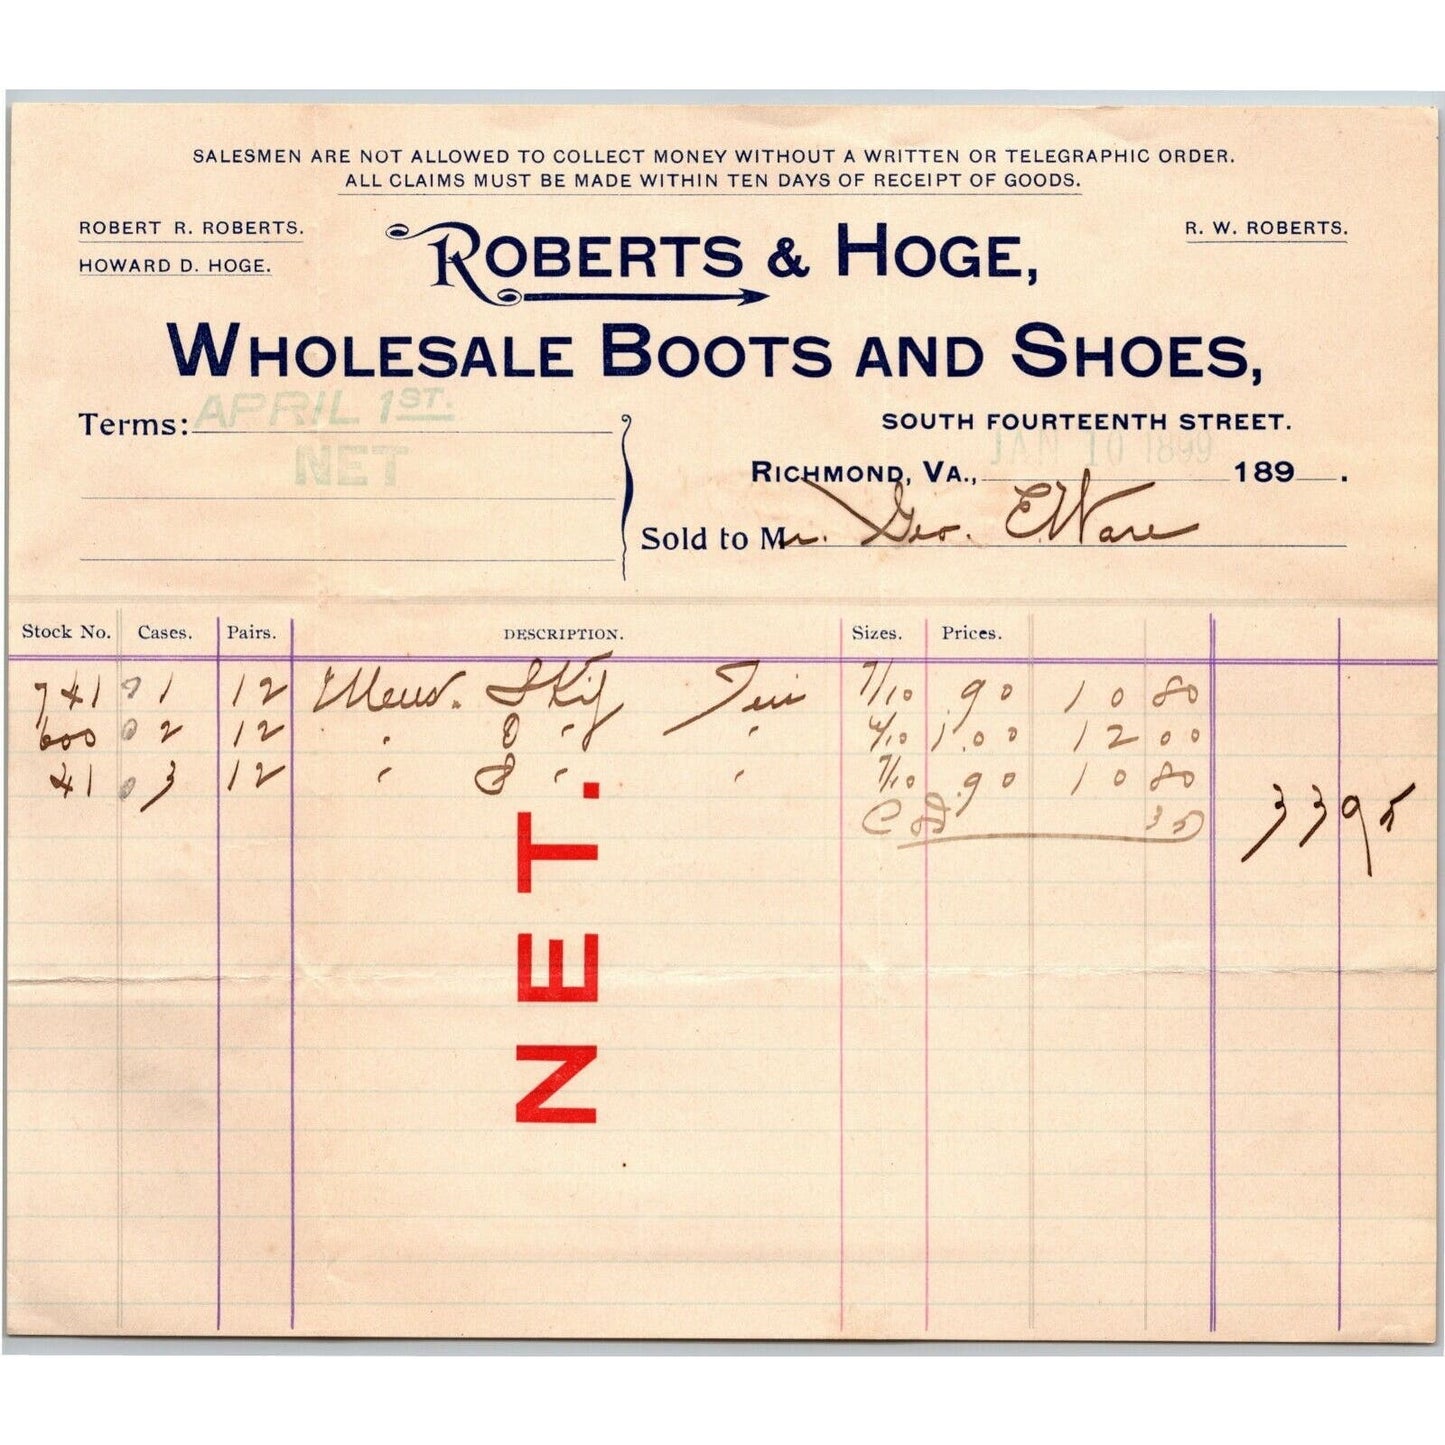 SALESMEN ARE NOT ALLOWED TO COLLECT MONEY WITHOUT A WRITTEN OR TELEGRAPHIC ORDER.
ALL CLAIMS MUST BE MADE WITHIN TEN DAYS OF RECEIPT OF GOODS.
ROBERT R. ROBERTS.
HOWARD D. HOGE.
R. W. ROBERTS.
ROBERTS & HOGE,
WHOLESALE BOOTS AND SHOES,
Terms: APRIL 1ST.
NET
SOUTH FOURTEENTH STREET.
JAN 10 1899
RICHMOND, VA., 189 .
Sold to Mr. Geo. E. Ware
Stock No. Cases. Pairs. DESCRIPTION. Sizes. Prices.
741 1 12 Mens. Kip 7/10 .90 10 80
600 2 12 " " " 6/10 1.00 12 00
41 3 12 " " " 7/10 .90 10 80
35
33 95
NET.